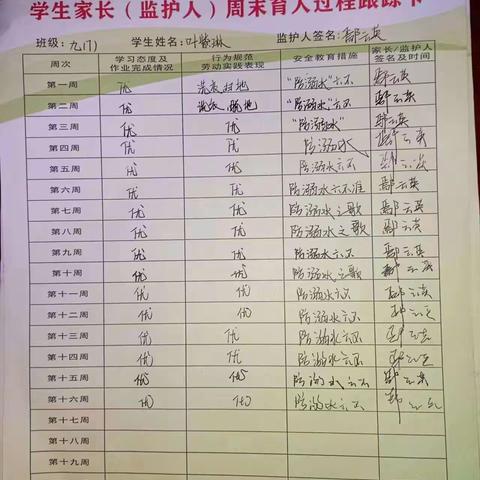 学生家长（监护人）周末育人过程跟踪卡
班级:九(1) 学生姓名: 监护人签名:鄢云英
周次 学习态度及作业完成情况 行为规范劳动实践表现 安全教育措施 家长/监护人签名及时间
第一周 优 洗衣扫地 "防溺水"六不 鄢云英
第二周 优 洗衣、脱地 "防溺水"六不 鄢云英
第三周 优 优 "防溺水" 鄢云英
第四周 优 优 防溺水 鄢云英
第五周 优 优 防溺水六不 鄢云英
第六周 优 优 防溺水六不准 鄢云英
第七周 优 优 防溺水之歌 鄢云英
第八周 优 优 防溺水之歌 鄢云英
第九周 优 优 防溺水六不 鄢云英
第十周 优 优 防溺水之歌 鄢云英
第十一周 优 优 防溺水六不 鄢云英
第十二周 优 优 防溺水六不
第十三周 优 优 防溺水六不
第十四周 优 优 防溺水六不
第十五周 优 优 防溺水六不
第十六周 优 优 防溺水六不
第十七周
第十八周
第十九周